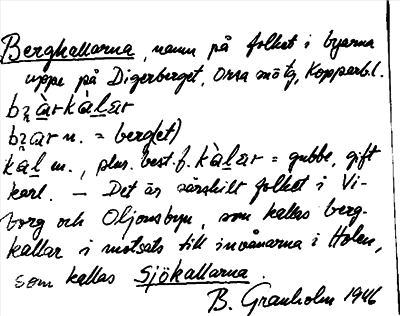 Bergkallarna, namn på folket i byarna
uppe på Digerberget, Orsa sn o tg, Kopperb.l.
bz̨a̲rkàl̲ar
bz̨a̲r n. = berg(et)
kal̲ m., plur. best. f. kàl̲ar = gubbe, gift
karl. – Det är särskilt folket i Vi-
borg och Oljonsbyn, som kallas berg-
kallar i motsats till invånarna i Holen,
som kallas Sjökallarna.
B. Granholm 1946